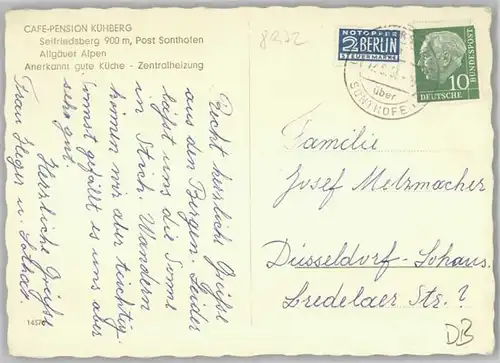 CAFE-PENSION KÜHBERG
Seifriedsberg 900 m, Post Sonthofen
Allgäuer Alpen
Anerkannt gute Küche - Zentralheizung
Recht herzliche Grüße
aus den Bergen. Leider
läßt uns die Sonne
im Stich. Wandern
können wir aber tüchtig.
Sonst gefällt es uns aber
sehr gut.
Herzliche Grüße
Frau Heger u. Lothar
8972
NOTOPFER
2 BERLIN
STEUERMARKE
über
SONTHOFEN
10
DEUTSCHE
BUNDESPOST
Familie
Josef Metzmacher
Düsseldorf-Lohaus
Bredelaer Str. 7
DB